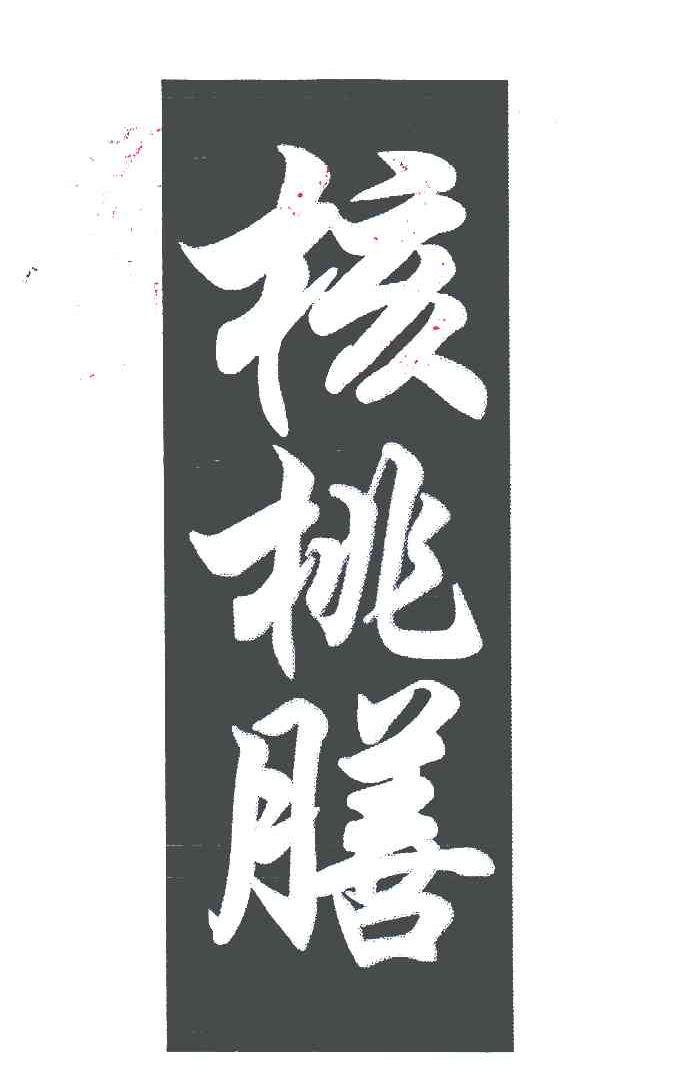 核桃膳